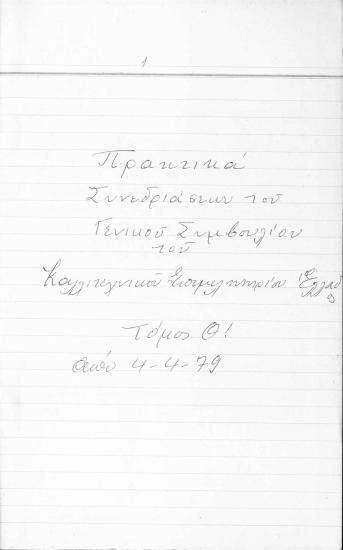 1
Πρακτικά
Συνεδριάσεων τοῦ
Γενικοῦ Συμβουλίου
τοῦ
Καλλιτεχνικοῦ Ἐπιμελητηρίου Ἑλλάδος
Τόμος Θ!
Ἀπό 4-4-79